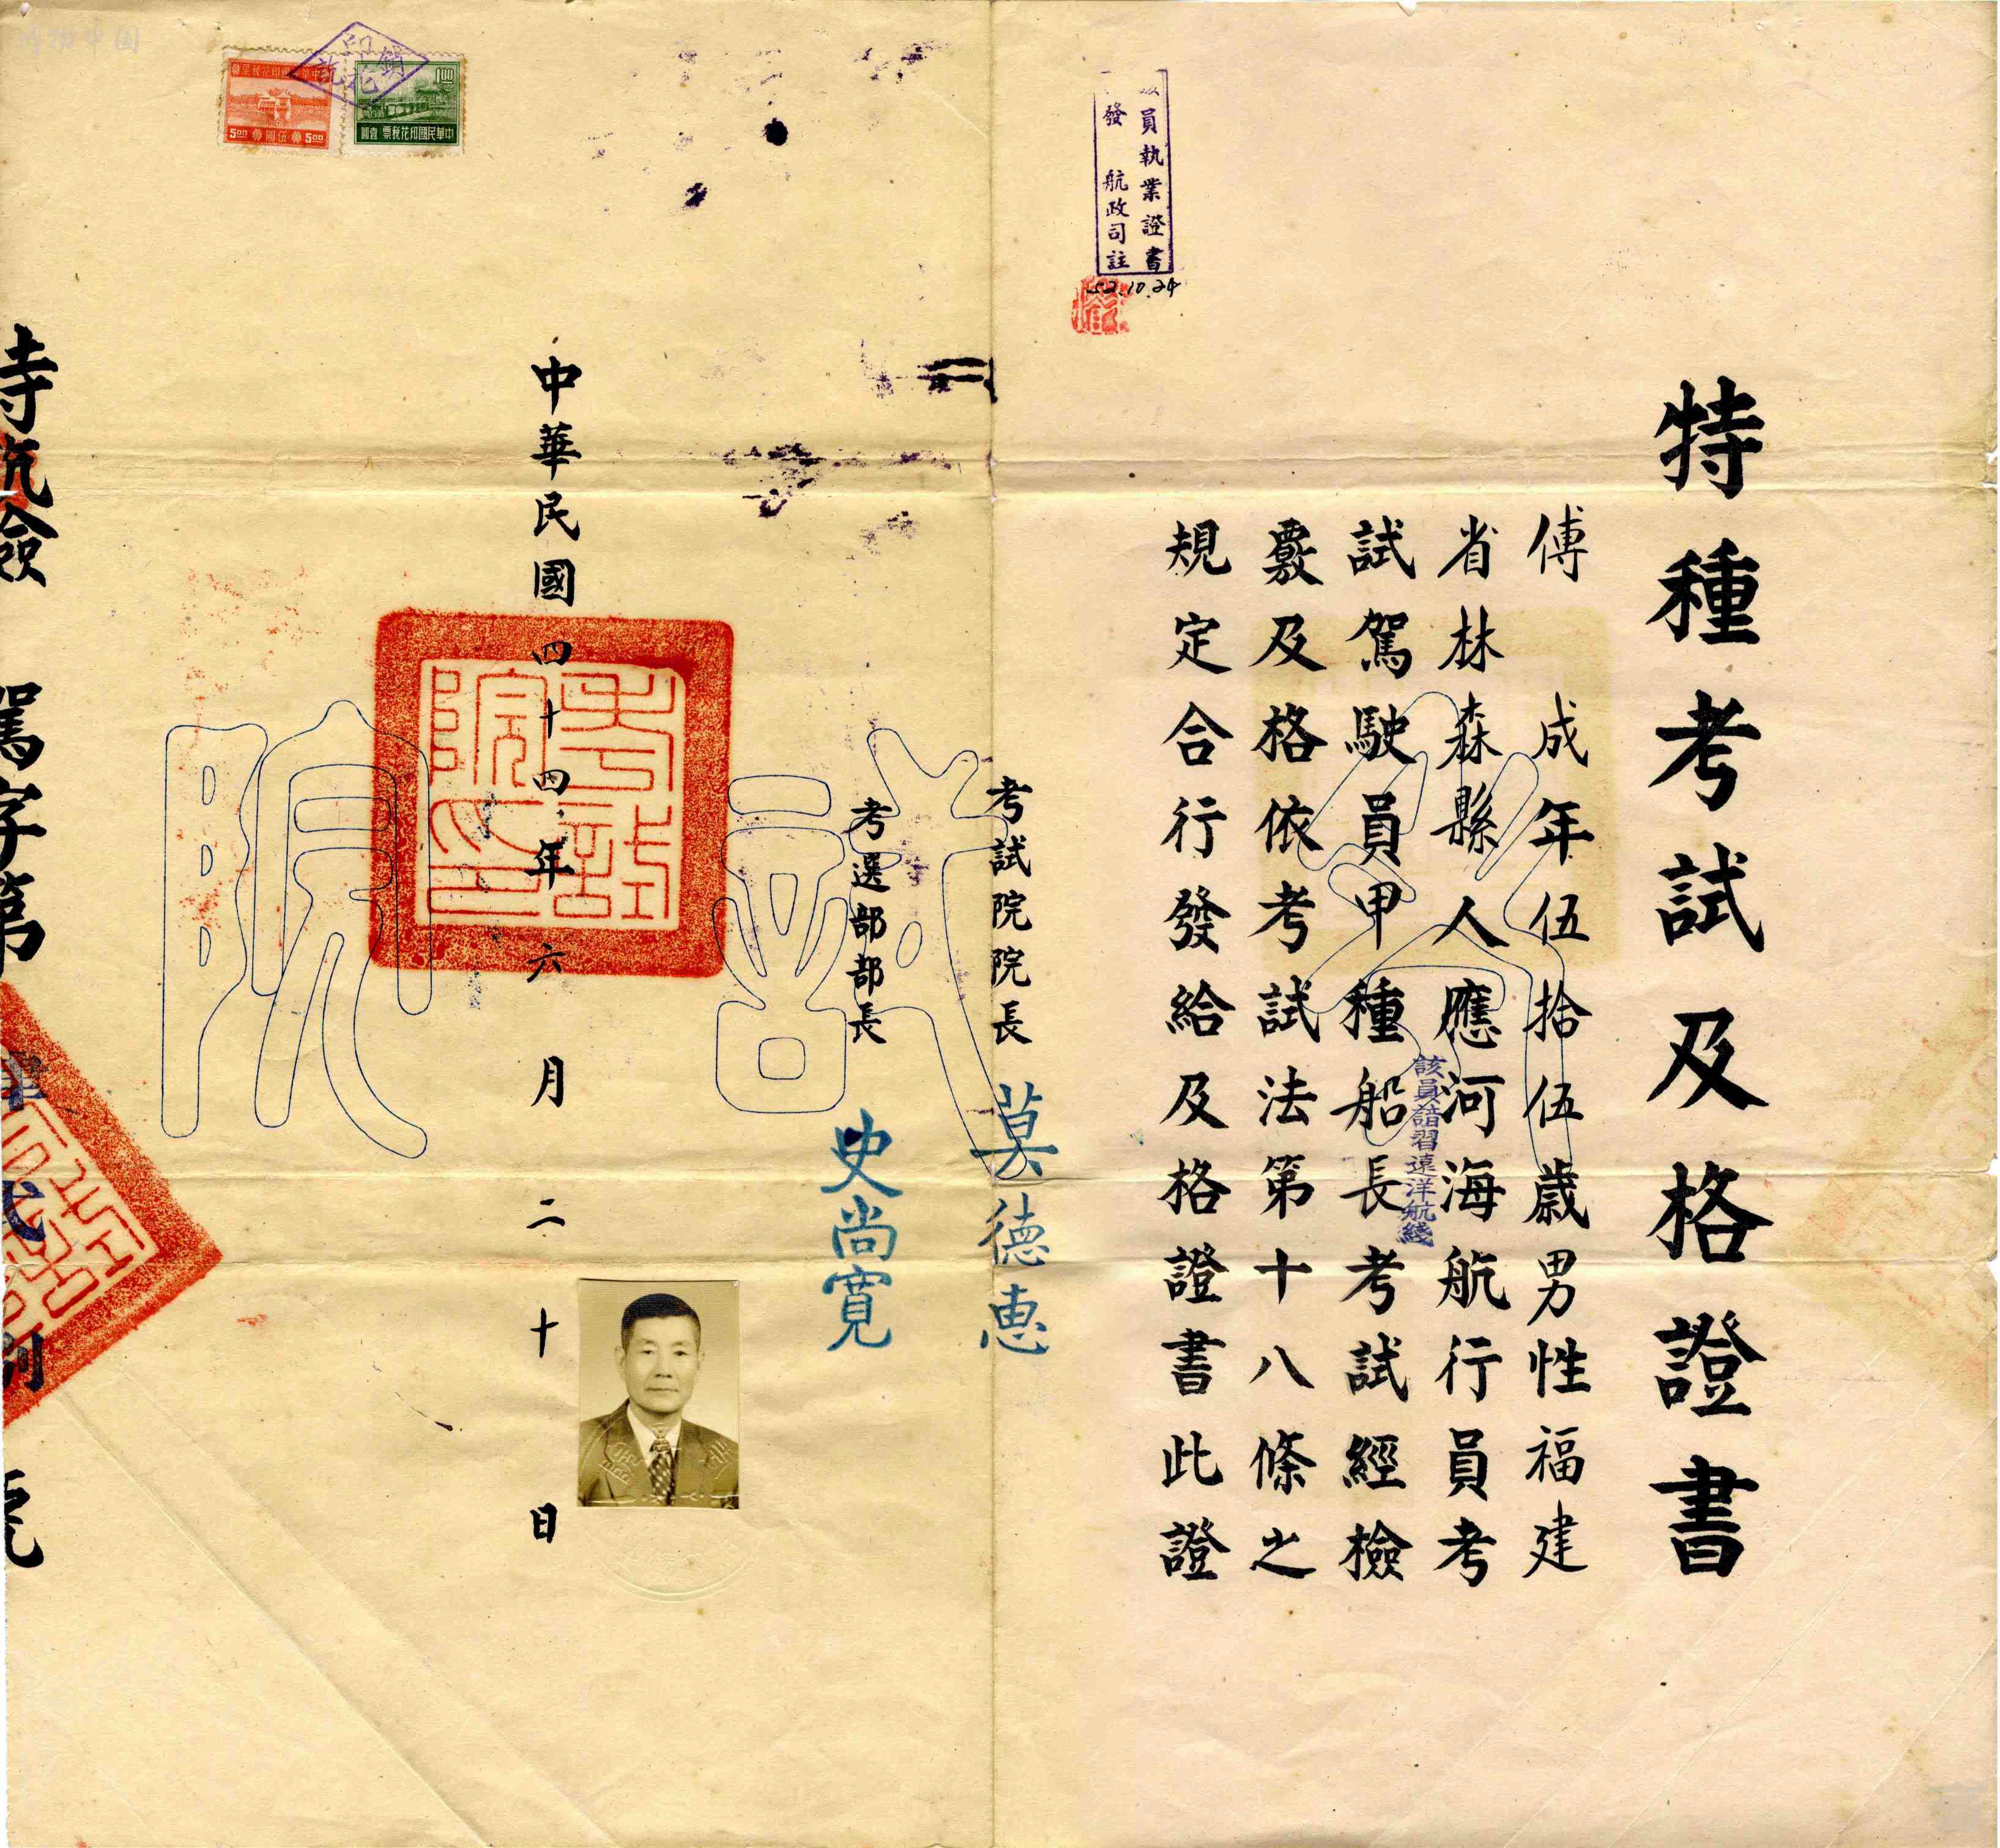 特種考試及格證書
傅 成年伍拾伍歲男性福建
省林森縣人應河海航行員考
試駕駛員甲種船長考試經檢
覈及格依考試法第十八條之
規定合行發給及格證書此證
該員諳習遠洋航綫
員執業證書
發 航政司註
52.10.24
考試院院長 莫德惠
考選部部長 史尚寬
中華民國四十四年六月二十日
考試院印
考試院
中華民國印花稅票
5.00 伍圓 5.00
1.00
中華民國印花稅票 壹圓
印花註銷
特航檢 駕字第 號